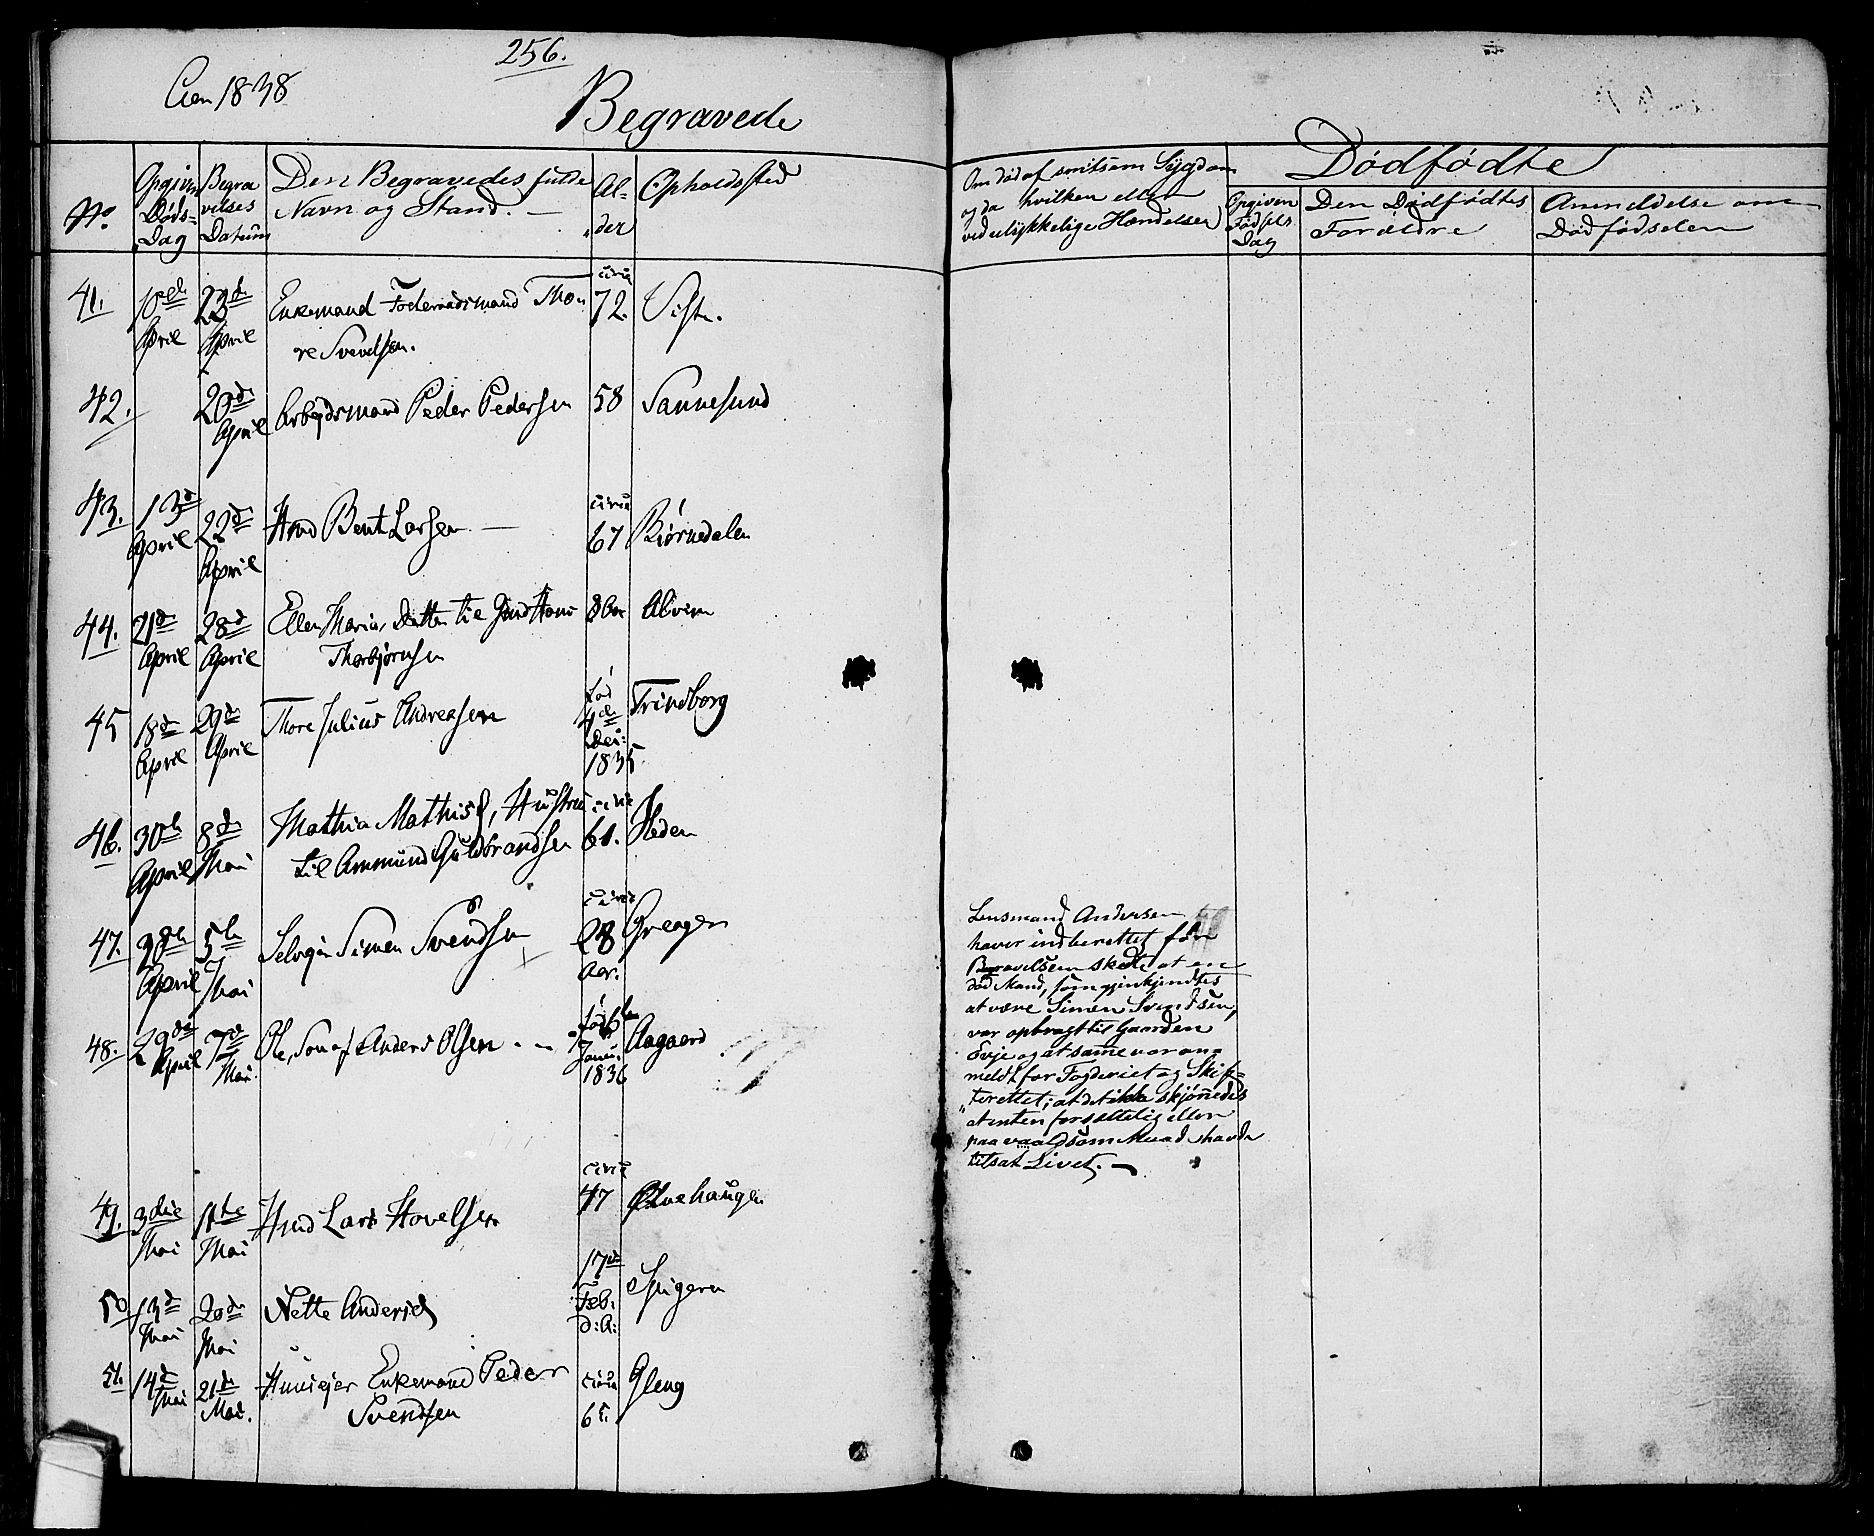 256.
Aar 1838
Begravede
No.
Opgiven Døds-Dag
Begravelses Datum
Den Begravedes fulde Navn og Stand. —
Alder
Opholdssted
Om død af smitsom Sygdom
og da hvilken eller
ved ulykkelige Hændelser
Dødfødte
Opgiven Fødsels Dag
Den Dødfødtes Forældre
Anmeldelse om Dødfødselen
41. 10de April 23de April Enkemand Føderaadsmand Tho- circa 72.
re Svendsen.
42. 20de April Arbejdsmand Peder Pedersen 58 Sannesund
43. 13de April 22de April Hmd Bent Larsen — circa 67 Bjørnedalen
44. 21de April 28de April Ellen Maria, Datter til Gmd Hans 8 Alvim
Thorbjørnsen
45 18de April 29de April Thore Julius Andreasen fød 4de Dec: 1835 Trindborg
46. 30te April 8de Mai Mathia Mathisd, Hustru circa 61. Heden
til Ammund Guldbrandsen
47. 30te April 5te Mai Selvejer Simen Svendsen circa 28 Aar. Greager
48. 29de April 7de Mai Ole, Søn af Anders Olsen. — født 6te Janu: 1836 Aagaard
Lensmand Andersen
haver indberettet før
Begravelsen skedte at en
død Mand, som gjenkjendtes
at være Simen Svendsen,
var opbragt til Gaarden
Evje og at samme var an-
meldt for Fogderiet og Skif-
teretten; at det ikke skjønnedes
at enten forsætlig eller
paa voldsom Maad havde
tilsat Livet. —
49. 3die Mai 11te Mai Hmd Lars Hovelsen circa 47
50 13de Mai 20de Mai Nette Andersd 17de Feb. d: A: Spigeren
51. 14de Mai 21de Mai. Huusejer Enkemand Peder circa 65. Gleng
Svendsen